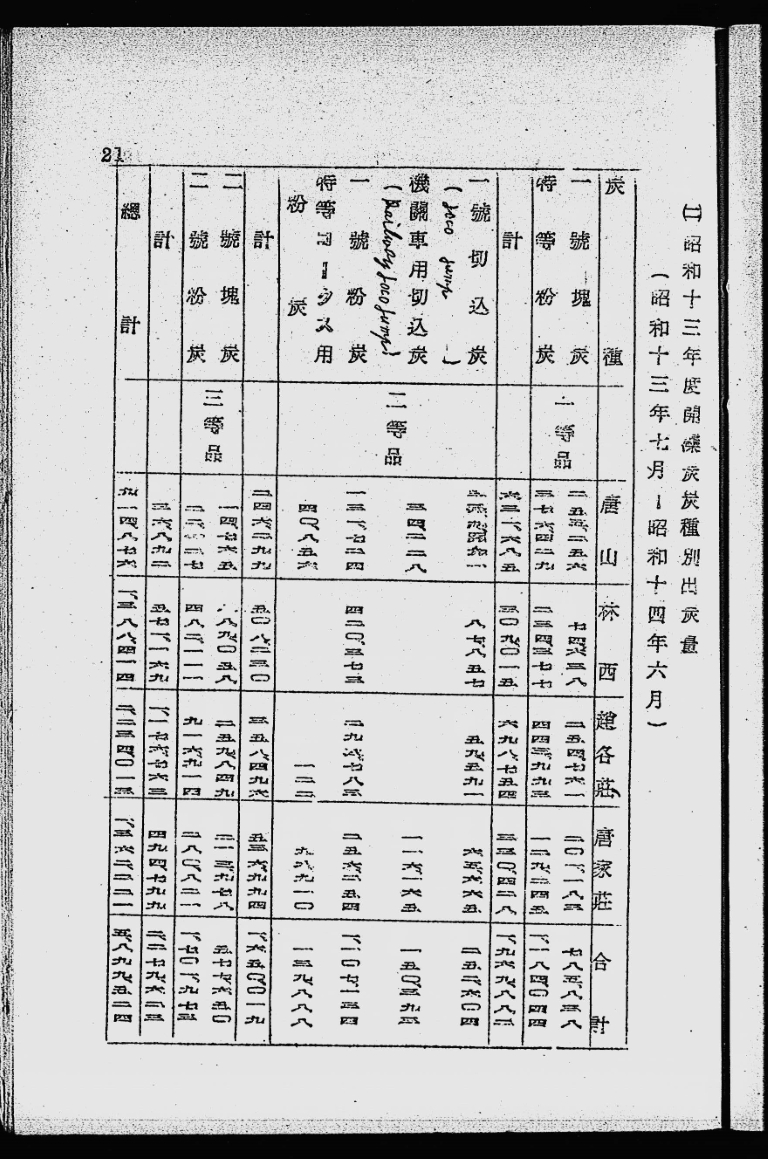 21
(二)昭和十三年度開灤炭炭種別出炭量
(昭和十三年七月ー昭和十四年六月)
炭種 唐山 林西 趙各莊 唐家莊 合計
一號塊炭 一等品 二五五二五六 七四六三八 二五四七六一 二〇一一八三 七八五八三八
特等粉炭 三七六四二九 二三四三七七 四四三九九三 一二九二四五 一、一八四〇四四
計 六三一六八五 三〇九〇一五 六九八七五四 三三〇四二八 一、九六九八八二
一號切込炭 三九四九一 八七八五七 五九五九一 六五六六五 二五二六〇四
(Loco lumps)
機關車用切込炭 二等品 三四二二八 一一六一六五 一五〇三九三
(Railway Loco lumps)
一號粉炭 一三一七二四 四二〇三七三 二九六七八三 二五八二五四 一、一〇七一三四
特等コークス用
粉炭 四〇八五六 一二二 九八九一〇 一三九八八八
計 二四六二九九 五〇八二三〇 三五六四九六 五三八九九四 一、六五〇〇一九
二號塊炭 三等品 一四七六五 八九〇五八 二五九八四九 二一三九七八 五七七六五〇
二號粉炭 二二一二七 四八二一一一 九一六九一四 二八〇八二一 一、七〇一九七三
計 三六八九二 五七一一六九 一、一七六七六三 四九四七九九 二二七九六二三
總計 九一四八七六 一、三八八四一四 二二三二〇一三 一、三六四二二一 五八九九五二四